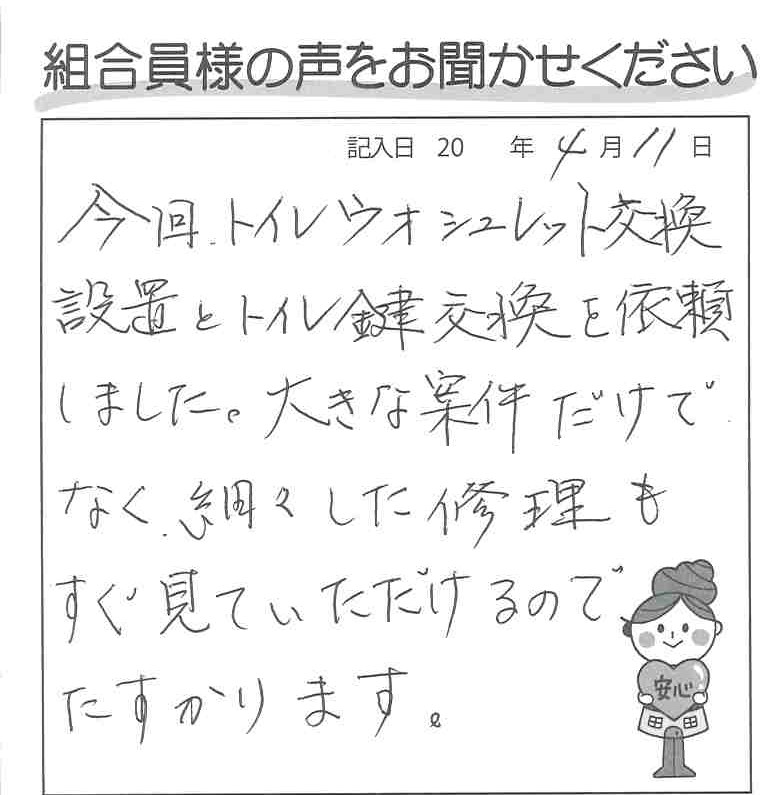 組合員様の声をお聞かせください
記入日 20 年 4月11日
今回、トイレウオシュレット交換
設置とトイレ鍵交換を依頼
しました。大きな案件だけで
なく、細々した修理も
すぐ見ていただけるので
たすかります。
安心